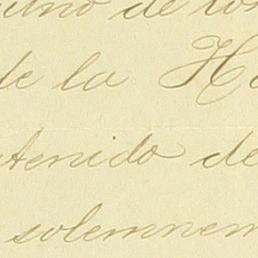 de
de la
tenido de
solemnem